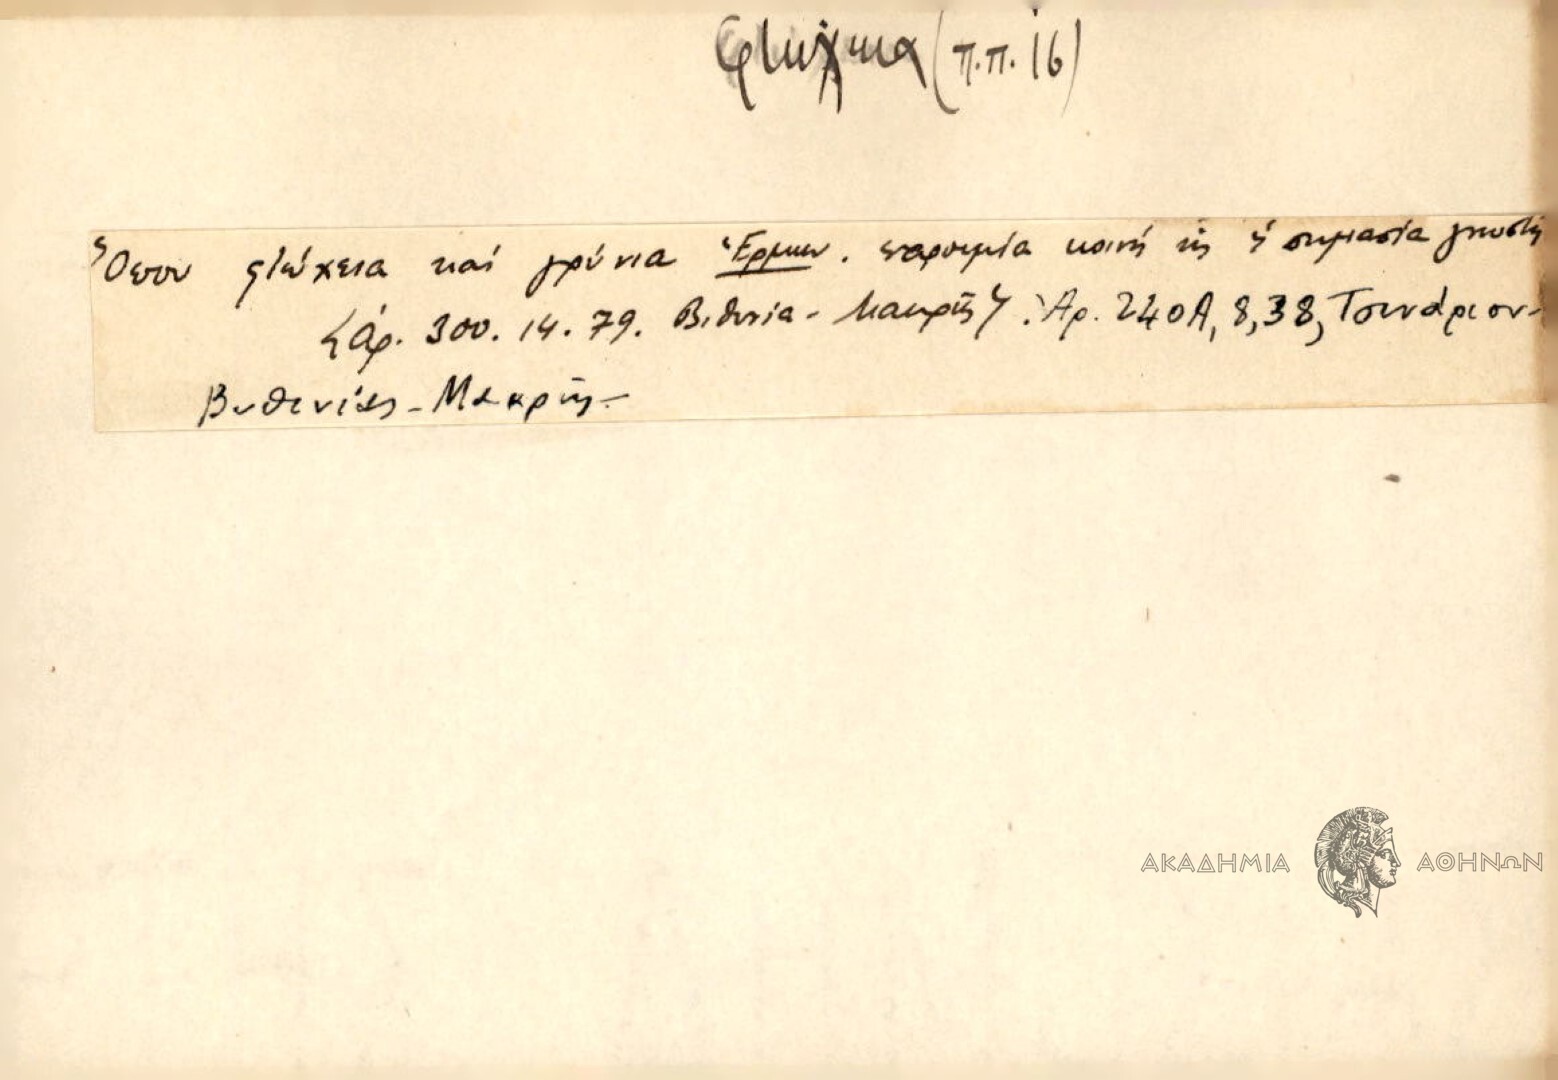 φτώχεια (π.π. 16)
Ὅπου φτώχεια καί γρύνια Ἑρμην. παροιμία κοινή τῆς ἡ σημασία γνωστή
Ἀρ. 300. 14. 79. Βιθυνία - Μακρῆς Ἀρ. 240Α, 8, 38, Τσινάριον-
Βυθινίας - Μακρῆς -
ΑΚΑΔΗΜΙΑ ΑΘΗΝΩΝ